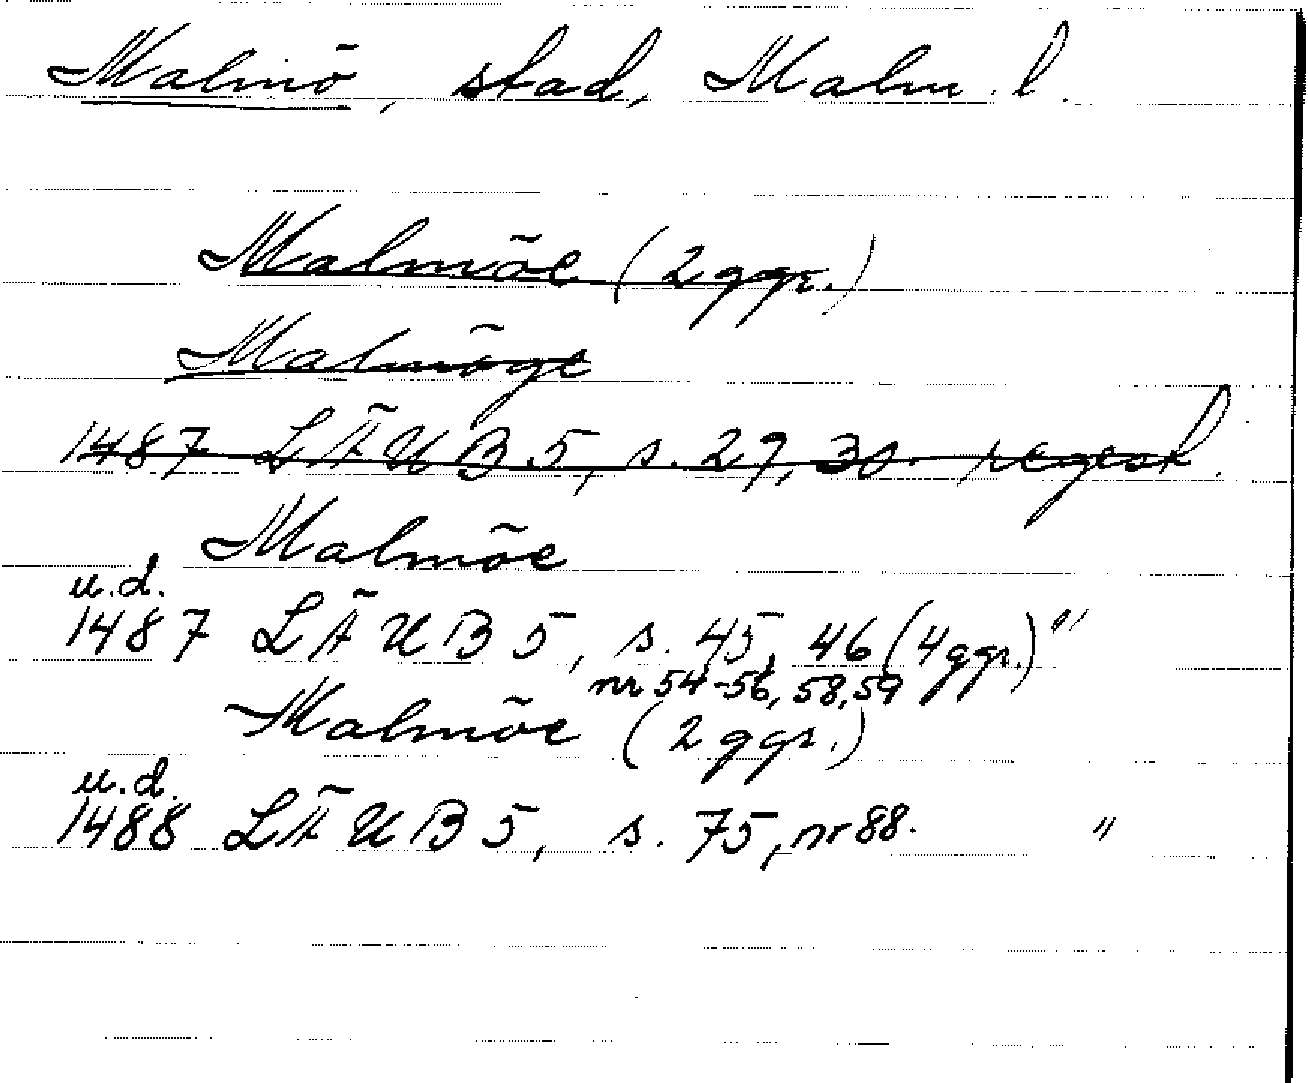 Malmö, stad, Malm. l.
Malmöe (2 ggr.)
Malmöge
1487 LÄUB 5, s. 29, 30. regest.
Malmöe
u.d.
1487 LÄUB 5, s. 45, 46 (4 ggr.) "
nr 54-56, 58, 59
Malmöe (2 ggr.)
u.d.
1488 LÄUB 5, s. 75, nr 88. "